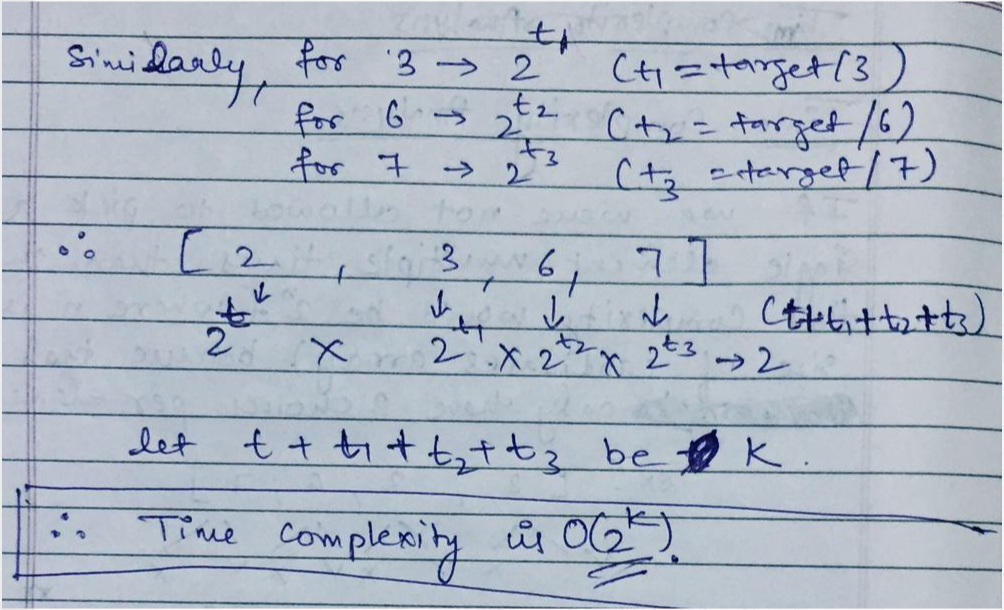 Similarly, for 3 → 2^t1 (t1 = target/3)
for 6 → 2^t2 (t2 = target/6)
for 7 → 2^t3 (t3 = target/7)
∴ [ 2 , 3 , 6 , 7 ]
↓ ↓ ↓ ↓
2^t × 2^t1 × 2^t2 × 2^t3 → 2^(t+t1+t2+t3)
let t + t1 + t2 + t3 be K.
∴ Time complexity is O(2^K).